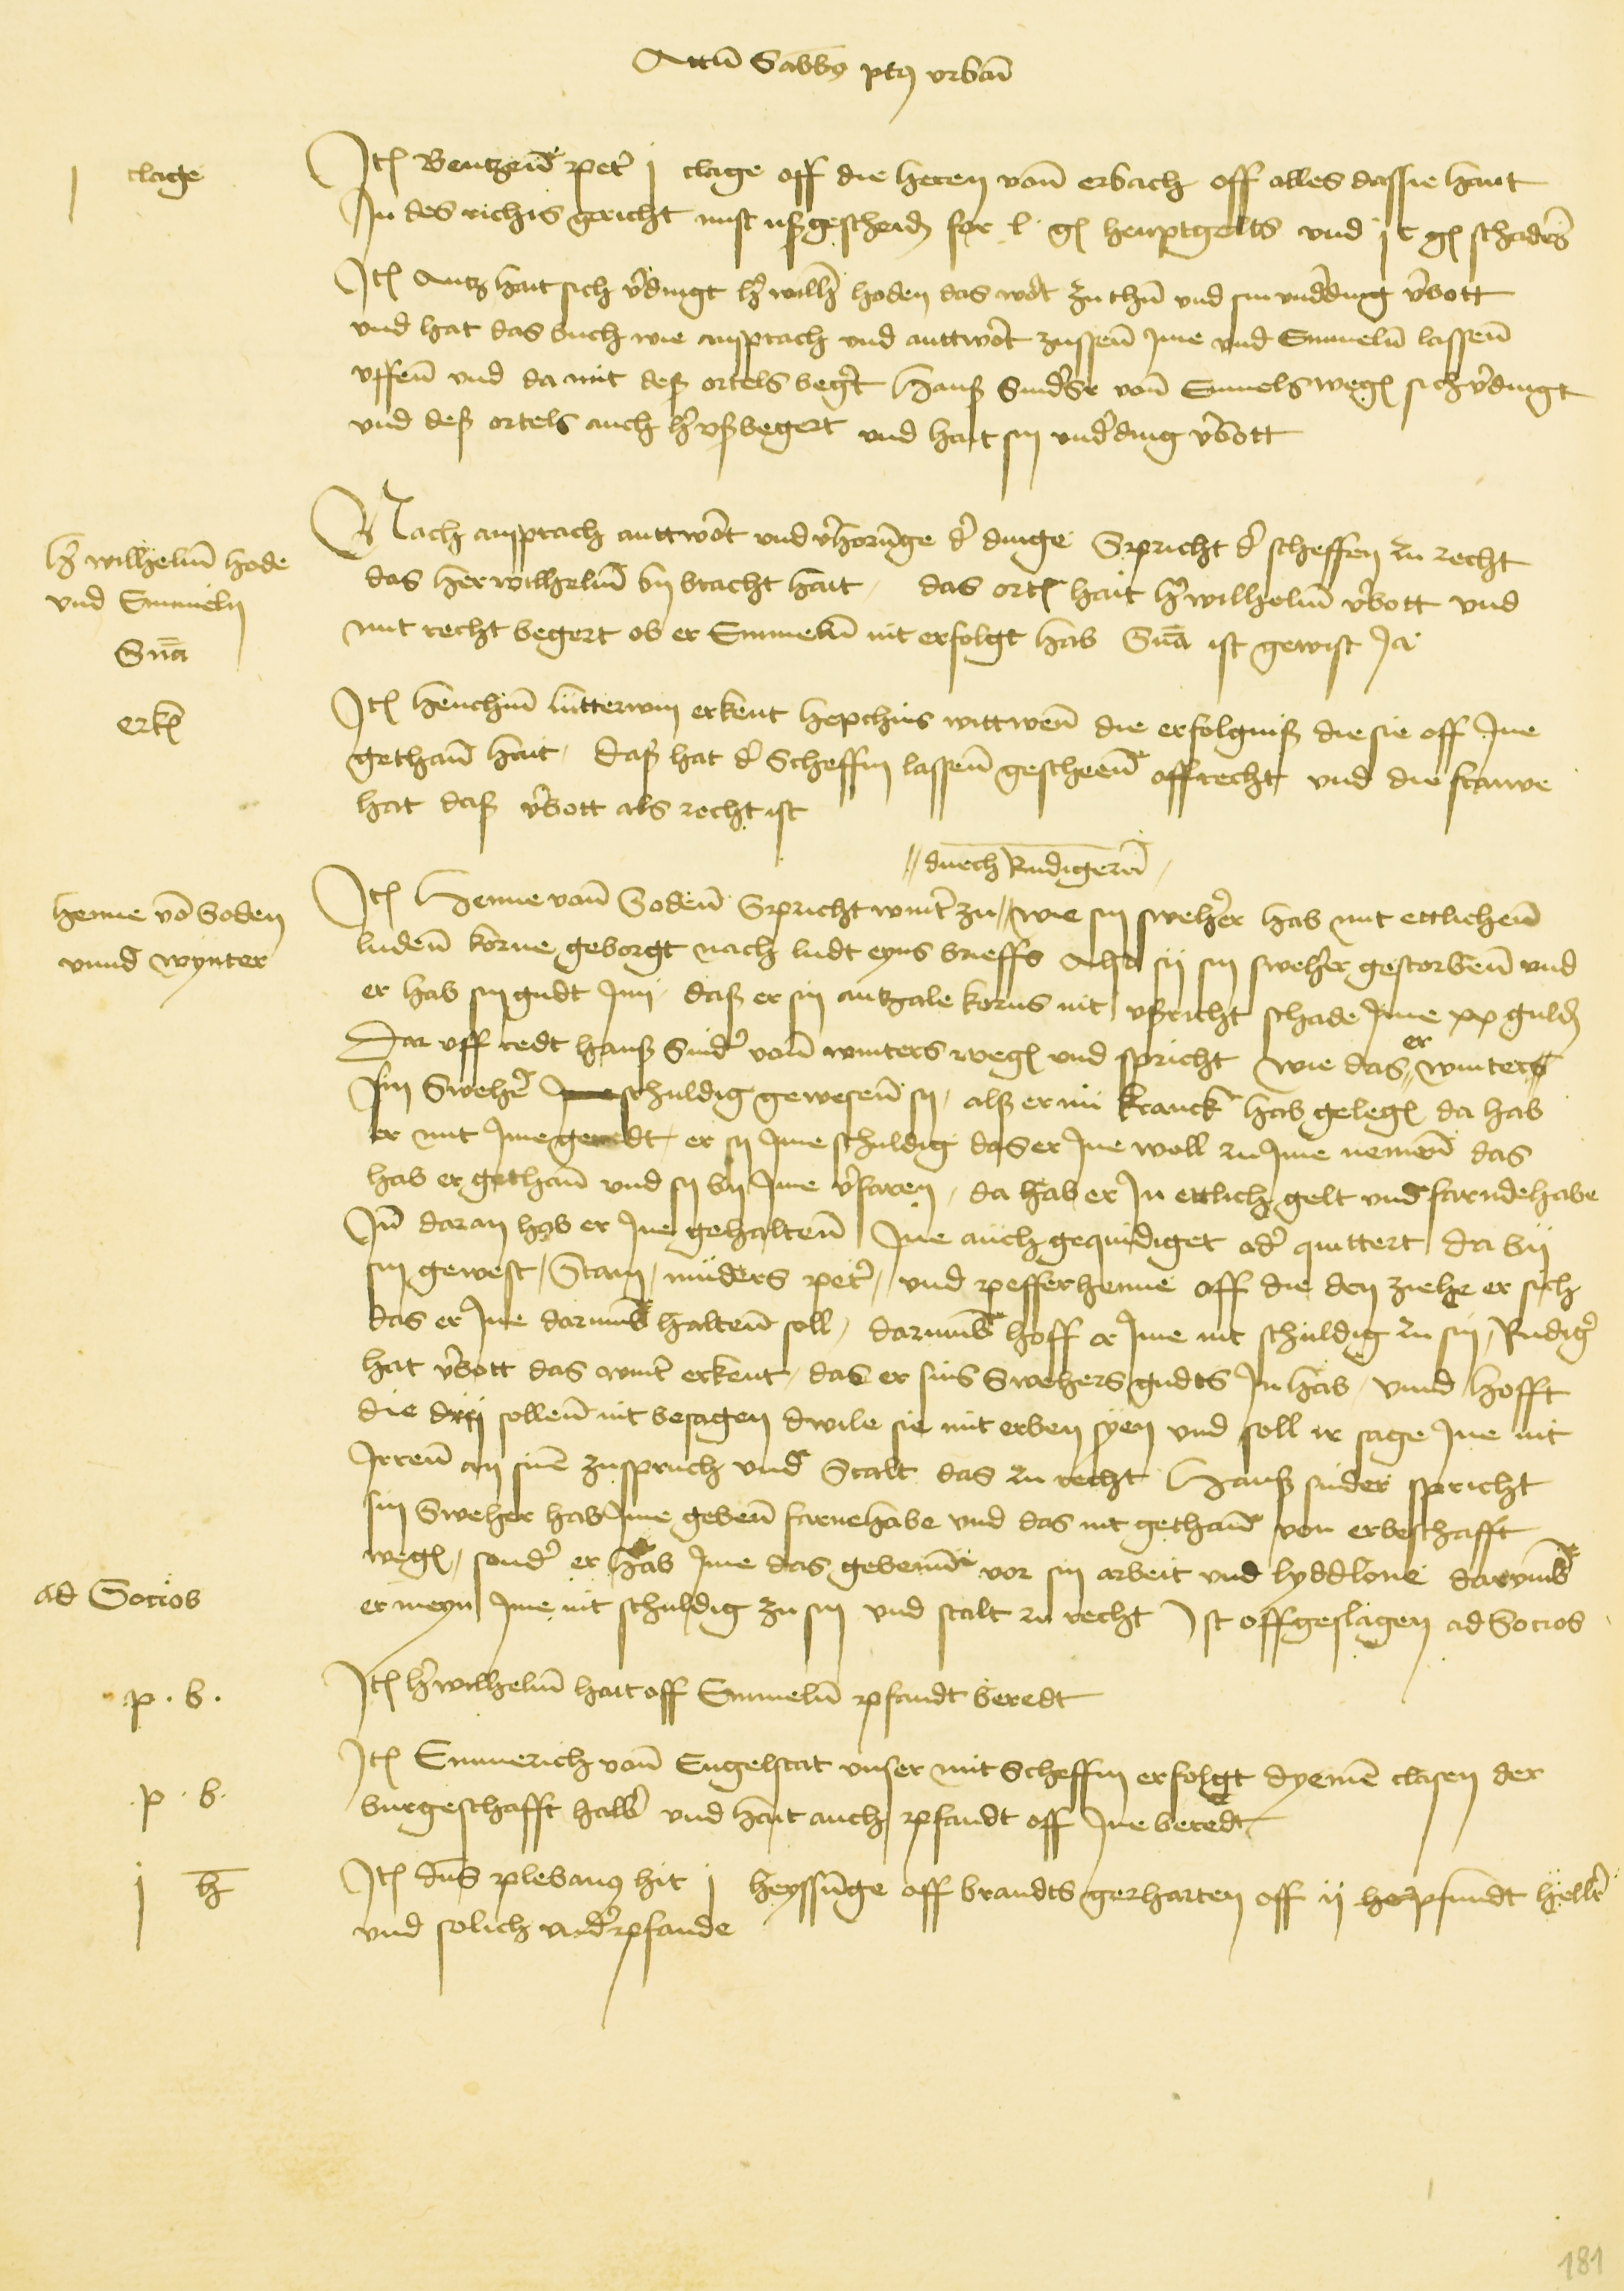 Actũ Sabbo ptꝯ vrbani
j clage
Itẽ Bentzeñd' pet' j clage off die heren vom̃ erbach off alles das sie hant
In des richis gericht nust ußgescheidẽ for l gl heuptgelts vnd j c gl schadẽs
Itẽ Antz hait sich v'dingt h' wilh' hoden das wort zu thũ vnd sin vnd'ding v'bott
vnd hat das buch wie ansprach vnd anttwort zussen̄ Ime vnd Emmeln̄ lassen̄
vffen̄ vnd da mit deß ortels beg't Hanß Snid' von̄ Emmels wegẽ sich v'dingt
vnd deß ortels auch h' vß begert vnd hait sin vnd'ding v'bott
h' wilhelm̄ hode
vnd Emmeln
Sñia
Nach ansprach anttwort vnd v'horũnge d' dinge Spricht d' scheffen zu recht
das her wilhelm̄ by bracht hait das ortẽ hait h' wilhelm̄ v'bott vnd
mit recht begert ob er Emmeln̄ nit erfolgt hab Sñia ist gewist Ja
erkẽ
Itẽ Henchin̄ lutterwin erkent hepchins wittwen̄ die erfolgniß die sie off Ine
gethan̄ hait daß hat d' Scheffin lassen̄ gescheen̄ off recht vnd die frauwe
hat daß v'bott als recht ist
durch Rudigern̄
Henne võ Soden
vnnd wynter
Itẽ Henne von̄ Soden̄ Spricht wint' zu wie sin sweher hab mit ettlichen̄
luden̄ korne geborgt nach ludt eyns brieffs Also sij sin sweher gestorben̄ vnd
er hab sin gudt Inn daß er sin antzale korns nit vßricht schade Ime xx guldẽ
er
Dar vff redt hanß Snid' von̄ winters wegẽ vnd spricht wie das winters
sin Sweh' Ime schuldig gewesen̄ sy alß er nü kranck hab gelegẽ da hab
er mit Ime geredt er sy Ime schuldig das er Ine woll zu Ime nemen̄ das
hab er gethan̄ vnd sy by Ime v'faren da hab er In ettlich gelt vnd farnde habe
Jñ daran hab er Ine gehalten̄ Ine auch gequidiget ad' quittert da by
sin gewest Stam muders pet' vnd pefferhenne off die den ziehe er sich
das er Ine darumb halten̄ soll darumb hoff er Ime nit schuldig zu sin Rudig'
hat v'bott das wint' erkent das er sins Swehers gudts In hab vnnd hofft
die drij sollen̄ nit besagen dwile sie mit erben syen vnd soll ir sage Ine nit
Irren̄ an sinẽ zuspruch vnd Stalt das zu recht Hanß snider spricht
sin Sweher hab Ime geben̄ farnehabe vnd das nit gethan̄ von erbeschafft
wegẽ sond' er hab Ime das gebenn̄ vor sin arbeit vnd lyddlone darvmb
ad Socios
er meyn Ime nit schuldig zu sin vnd stalt zu recht Ist offgeslagen ad Socios
p. b.
Itẽ h' wilhelm̄ hait off Emmeln̄ pfandt beredt
p. b.
Itẽ Emmerich von̄ Engelstat vnser mit Scheffin erfolgt dyemẽ clasen der
burgeschafft halb' vnd hait auch pfandt off Ine beredt
j h̄
Itẽ dñs plebanꝯ hit j heyssũnge off brandts gerharten off ij pfundt hell'
vnd solich vnd'pfande
181